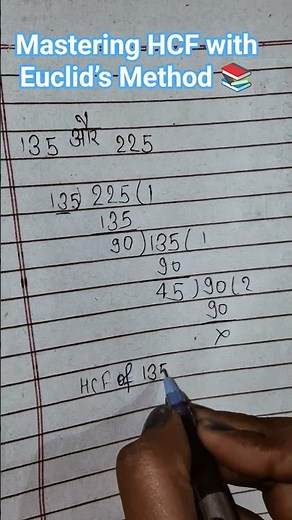 Mastering HCF with
Euclid's Method 📚
135 और 225
135) 225 (1
135
90) 135 (1
90
45) 90 (2
90
×
HCF of 135